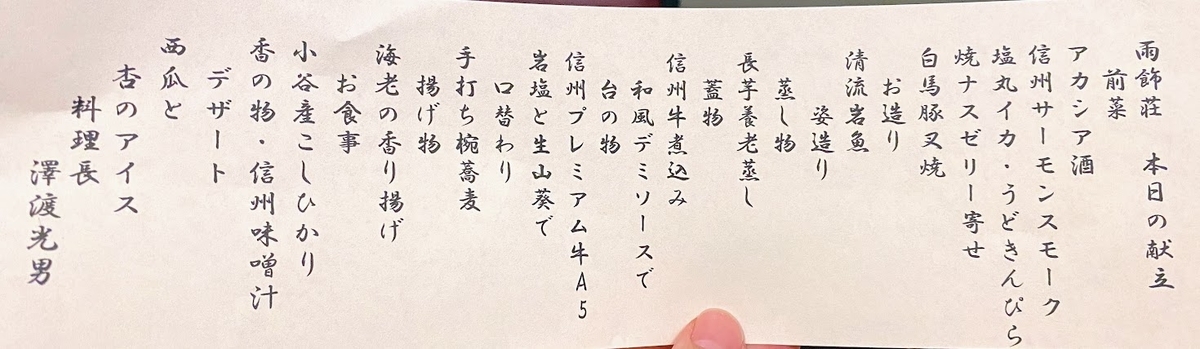 雨飾荘 本日の献立
前菜
アカシア酒
信州サーモンスモーク
塩丸イカ・うどきんぴら
焼ナスゼリー寄せ
白馬豚叉焼
お造り
清流岩魚
姿造り
蒸し物
長芋養老蒸し
蓋物
信州牛煮込み
和風デミソースで
台の物
信州プレミアム牛A5
岩塩と生山葵で
口替わり
手打ち椀蕎麦
揚げ物
海老の香り揚げ
お食事
小谷産こしひかり
香の物・信州味噌汁
デザート
西瓜と
杏のアイス
料理長
澤渡光男